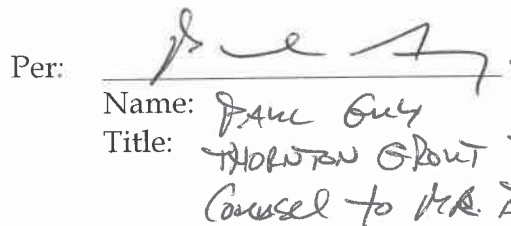 Per:
Name: PAUL Guy
Title: THORNTON GROUT
Counsel to MR.